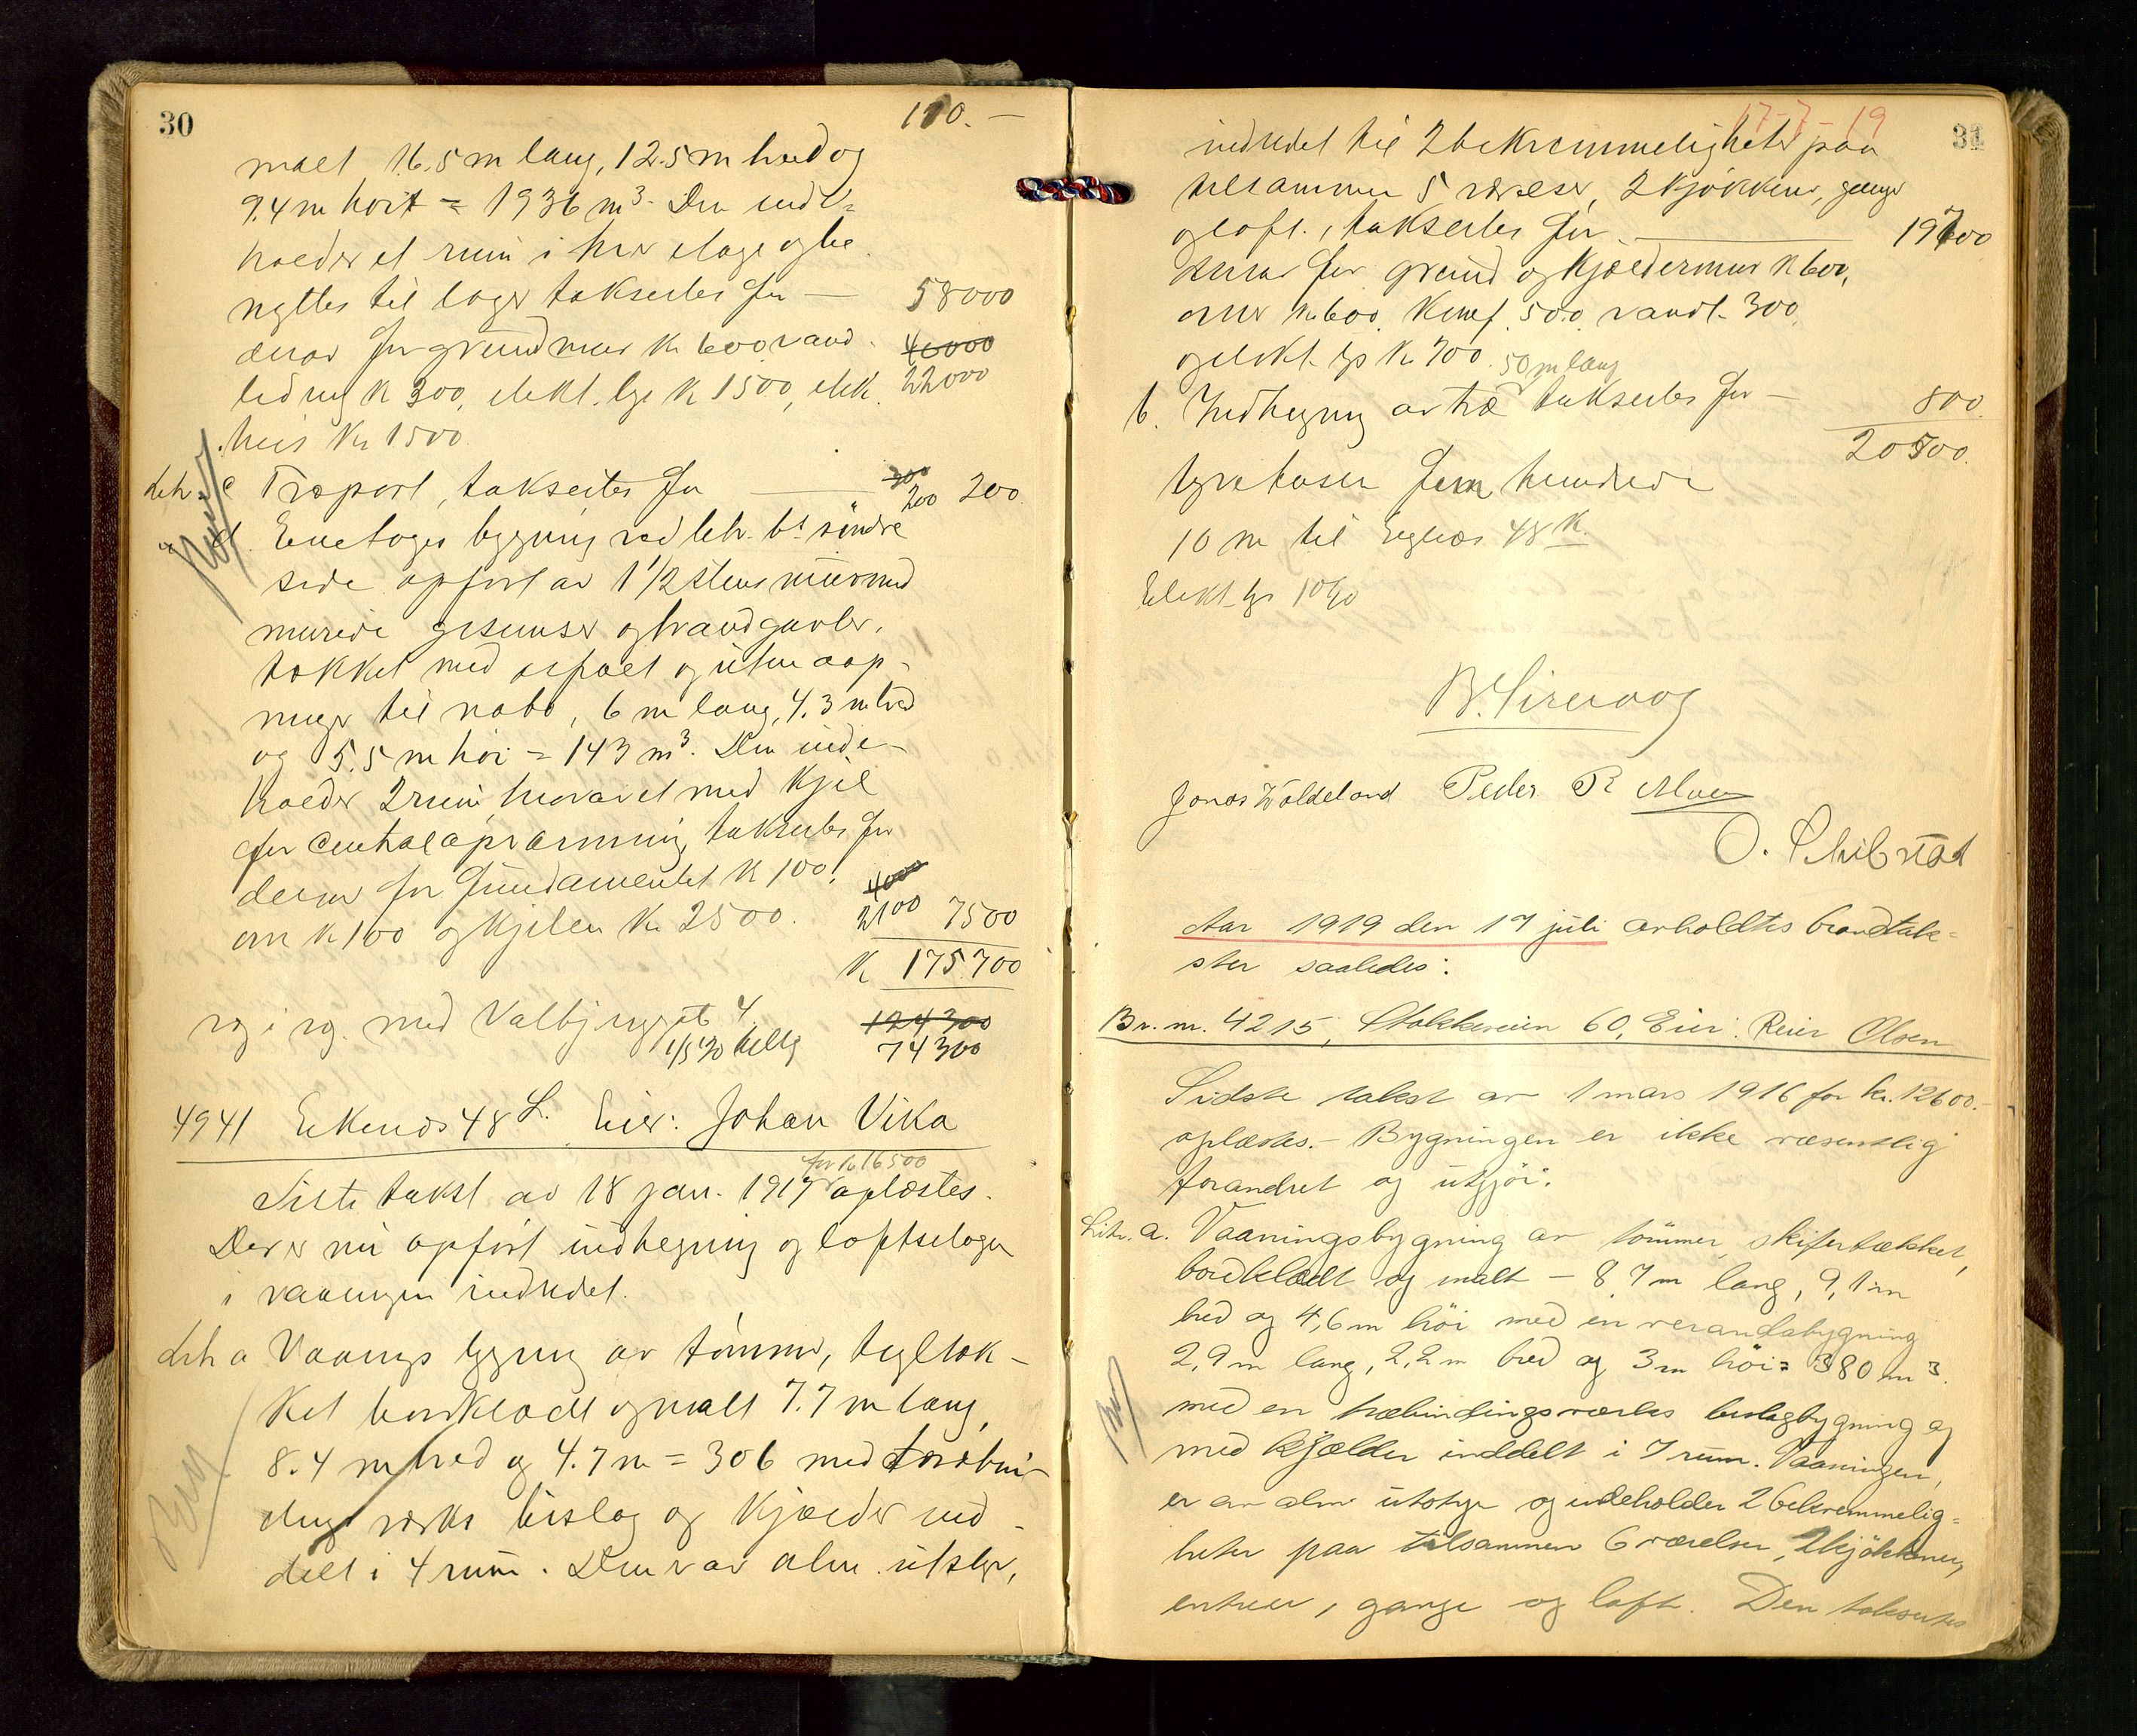 30
110.—
malt 16.5 m lang, 12.5 m bred og
9.4 m høit = 1936 m³. Den inde-
holder et rum i hver etage og be
nyttes til lager takseres for — 58000
derav for grundmur K 600 vand- 40000
ledning K 300, elekt. lys K 1500, elek. 22000
heis Kr 1500
Litr. c Træport, takseres for — 300 200 200
" d. Enetages bygning ved litr. b's søndre
side opført av 1 1/2 stens mur med
murede gesimser og brandgavler,
tækket med asfalt og uten aap-
ninger til nabo, 6 m lang, 4.3 m bred
og 5.5 m høi = 143 m³. Den inde-
holder 2 rum, hvorav et med kjel
for centralopvarmning, takseres for
derav for fundamentet K 100, 4000
ovn K 100 og kjelen Kr. 2500. 2100 7500
K 175700
124300
1/5 30 74300
4941 Eikenes 48 L. Eier: Johan Vika
for k 16500
Siste takst av 18 jan. 1917 oplæstes.
Der er nu opført indhegning og loftsetagen
i vaaningen indredet.
Litr a Vaanings bygning av tømmer, teglæk-
ket bordklædt og malt 7.7 m lang,
8.4 m bred og 4.7 m = 306 med træbin-
dings verks bislag og kjælder ind-
delt i 4 rum. Den er av alm. utstyr,
17-7-19
31
indredet til 2 bekvemmeligheter paa
tilsammen 5 værelser, 2 kjøkkener, gange
og loft, takseres for — 19700
derav for grund og kjældermur K 600,
ovner kr 600. Komf. 500. vandl. 300.
og elekt. lys K 700. 50 m lang
b. Indhegning av træ takseres for — 800
20500.
tyvetusen fem hundrede
10 m til Eiganes 48 K.
Elekt. lys
B. Sirevaag
Jonas Voldeland Peder R Moen
O. Schibstad
Aar 1919 den 17 juli avholdtes brandtak-
ster saaledes:
Br. nr. 4215, Stokkeveien 60, Eier: Reier Olsen
Sidste takst av 1 mars 1916 for kr. 12600.-
oplæstes. - Bygningen er ikke væsentlig
forandret og utgjør:
Litr. a. Vaaningsbygning av tømmer, skifertækket,
bordklædt og malt – 8,7 m lang, 9,1 m
bred og 4,6 m høi med en verandabygning
2,9 m lang, 2,2 m bred og 3 m høi = 380 m³.
med en træbindingsverks bislagbygning og
med kjælder inddelt i 7 rum. Vaaningen,
er av alm utstyr og indeholder 2 bekvemmelig-
heter paa tilsammen 6 værelser, 2 kjøkkener,
entreer, gange og loft. Den takseres